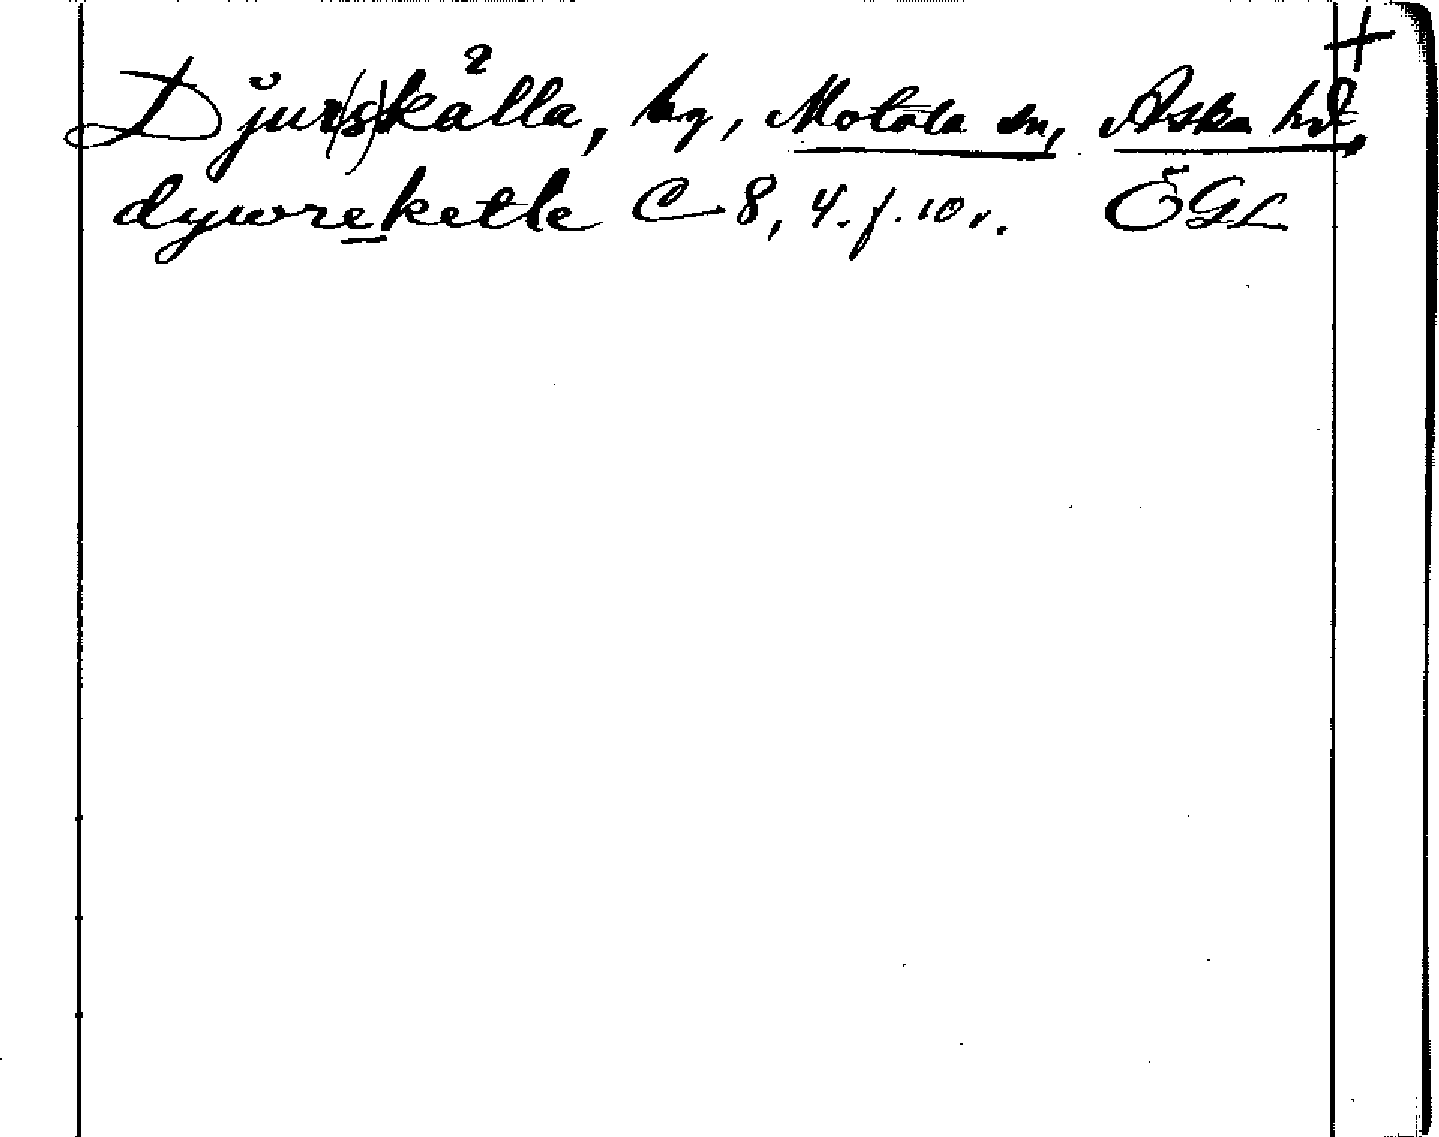 +
Djur(s)källa, by, Motala sn, Aska hd,
dywreketle C 8, 4. f. 10 r. ÖGL